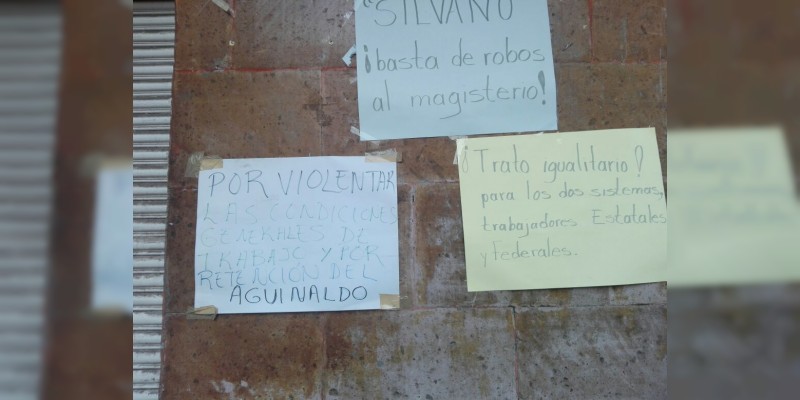 "SILVANO
¡basta de robos
al magisterio!
¡Trato igualitario!
para los dos sistemas,
trabajadores Estatales
y Federales.
POR VIOLENTAR
LAS CONDICIONES
GENERALES DE
TRABAJO Y POR
RETENCION DEL
AGUINALDO